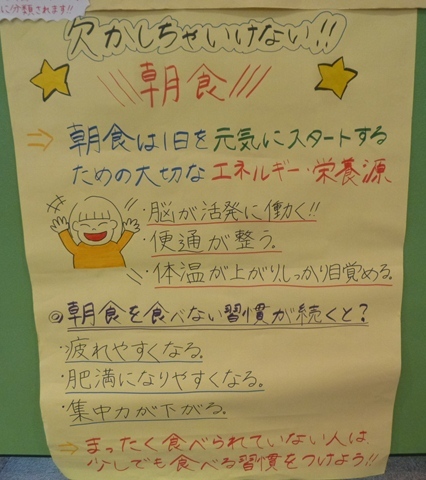 に分類されます!!
欠かしちゃいけない!!
朝食
⇒ 朝食は1日を元気にスタートする
ための大切なエネルギー・栄養源
・脳が活発に働く!!
・便通が整う。
・体温が上がり、しっかり目覚める。
◎朝食を食べない習慣が続くと?
・疲れやすくなる。
・肥満になりやすくなる。
・集中力が下がる。
⇒ まったく食べられていない人は、
少しでも食べる習慣をつけよう!!